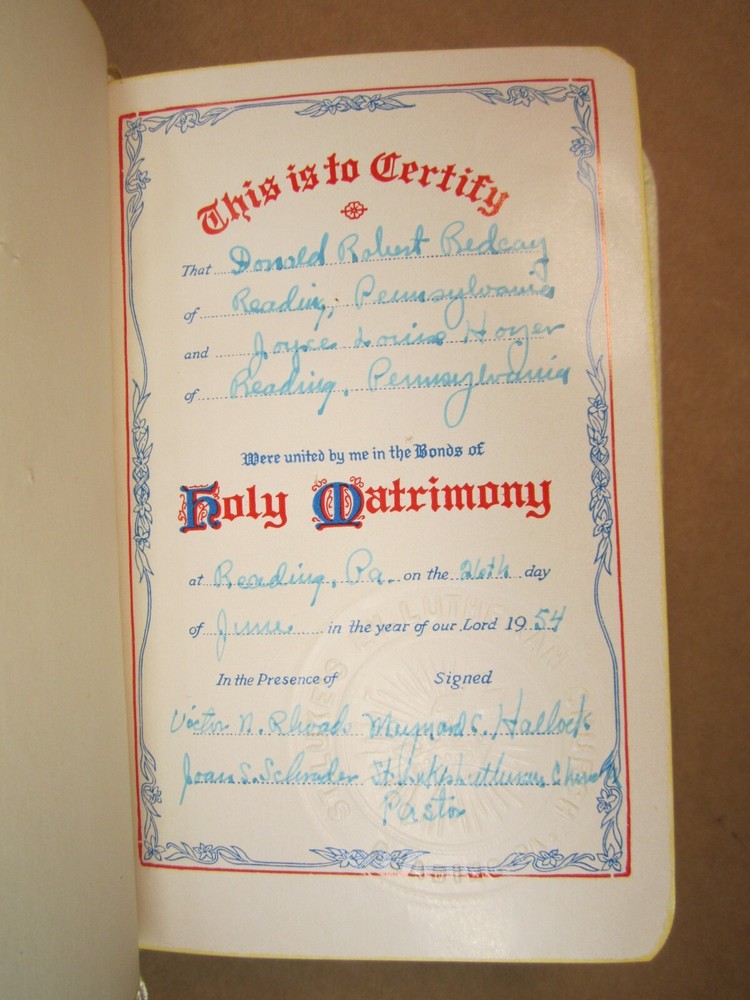 This is to Certify
That Donald Robert Redcay
of Reading, Pennsylvania
and Joyce Louise Hoyer
of Reading, Pennsylvania
Were united by me in the Bonds of
Holy Matrimony
at Reading, Pa. on the 26th day
of June in the year of our Lord 1954
In the Presence of Signed
Victor N. Rhoads Maynard C. Hallock
Joan S. Schrader St. Lukes Lutheran Church
Pastor